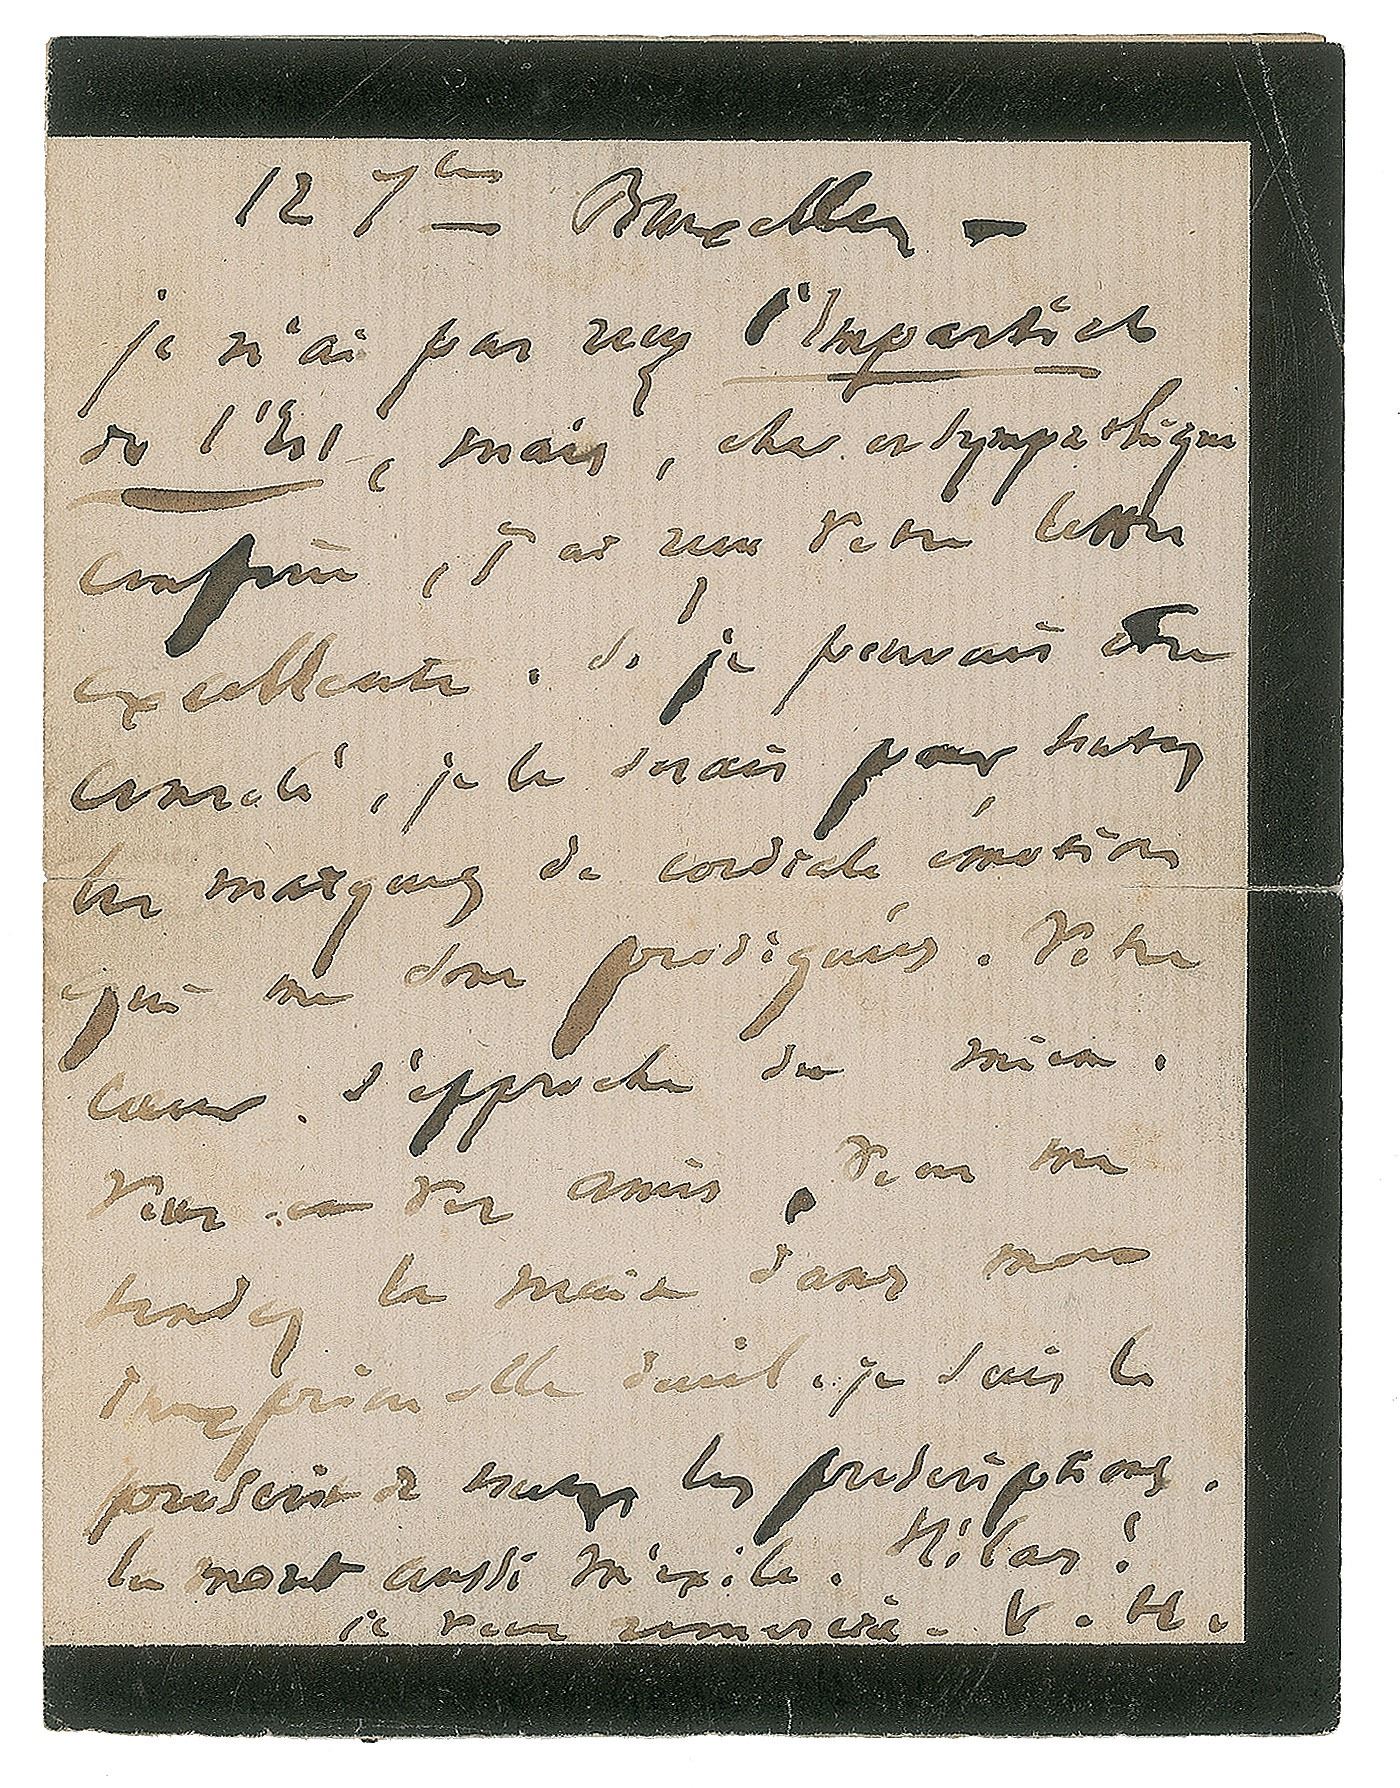 12 7bre Bruxelles –
je n'ai pas reçu l'Impartial
de l'Est, mais, cher et sympathique
confrère, j'ai reçu votre lettre
excellente. Si je pouvais être
consolé, je le serais par toutes
les marques de cordiale émotion
qui me sont prodiguées. Votre
cœur s'approche du mien.
Vous et vos amis, vous me
tendez la main dans mon
deuil. je suis le
proscrit de toutes les proscriptions.
la mort aussi m'exile. Hélas !
je vous remercie. V. H.